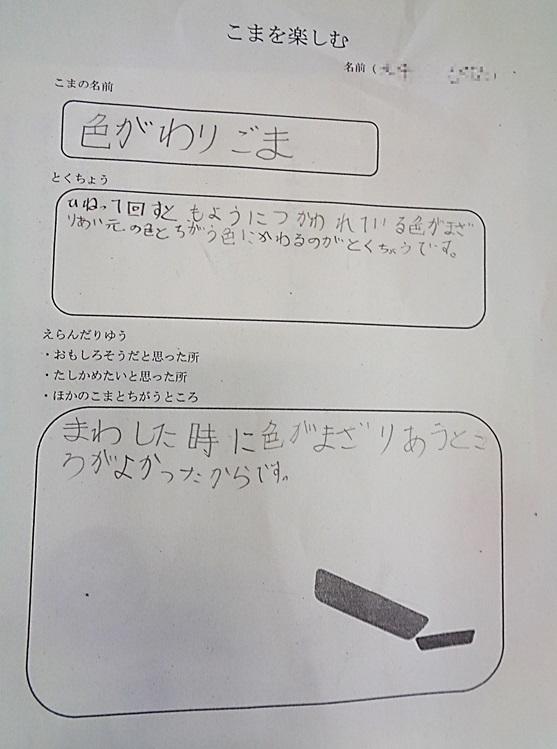 こまを楽しむ
名前(
)
こまの名前
色がわりごま
とくちょう
ひねって回すと もようにつかわれている色がまざ
りあい元の色とちがう色にかわるのがとくちょうです。
えらんだりゆう
・おもしろそうだと思った所
・たしかめたいと思った所
・ほかのこまとちがうところ
まわした時に色がまざりあうとこ
ろがよかったからです。